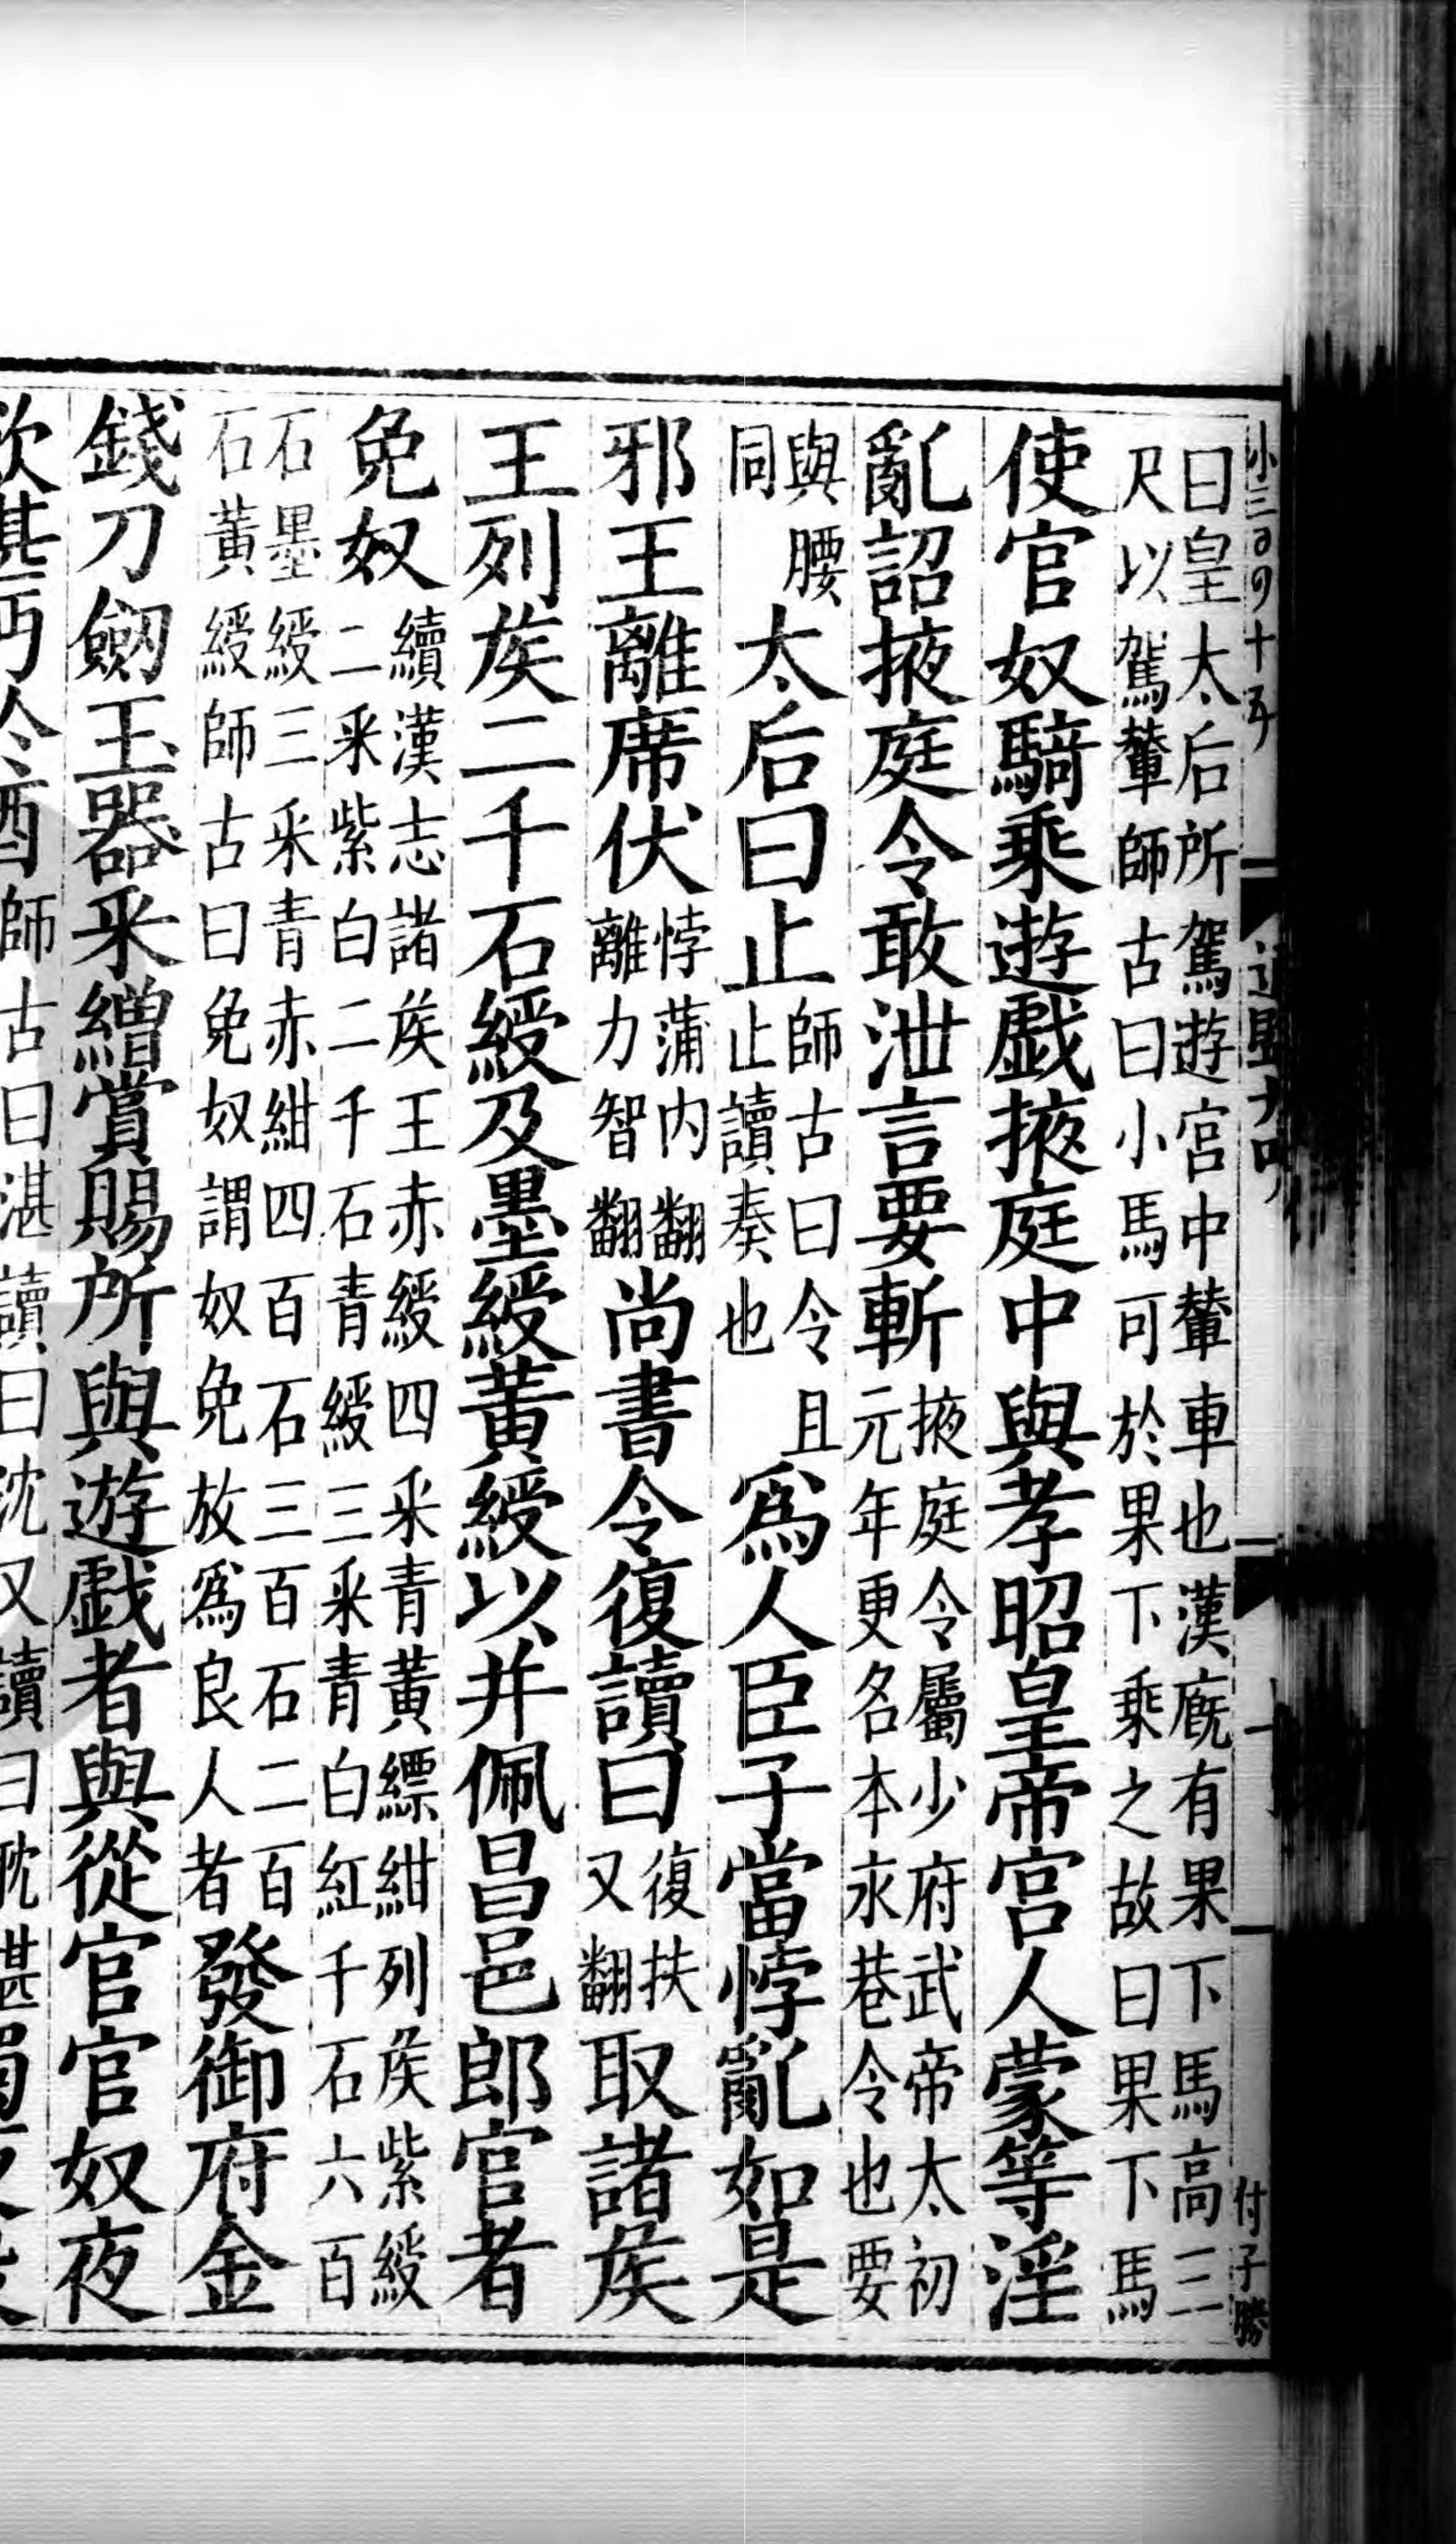 曰皇太后所駕遊宮中輦車也漢廐有果下馬高三
尺以駕輦師古曰小馬可於果下乘之故曰果下馬
使官奴騎乘遊戲掖庭中與孝昭皇帝宮人蒙等淫
亂詔掖庭令敢泄言要斬掖庭令屬少府武帝太初
元年更名本永巷令也要
與腰
同太后曰止師古曰令且
止讀奏也爲人臣子當悖亂如是
邪王離席伏悖蒲内翻
離力智翻尚書令復讀曰復扶
又翻取諸矦
王列矦二千石綬及墨綬黃綬以并佩昌邑郎官者
免奴續漢志諸矦王赤綬四采青黃縹紺列矦紫綬
二采紫白二千石青綬三采青白紅千石六百
石墨綬三采青赤紺四百石三百石二百
石黃綬師古曰免奴謂奴免放爲良人者發御府金
錢刀劒玉器采繒賞賜所與遊戲者與從官官奴夜
師古曰湛讀曰沈又讀曰耽
付子勝